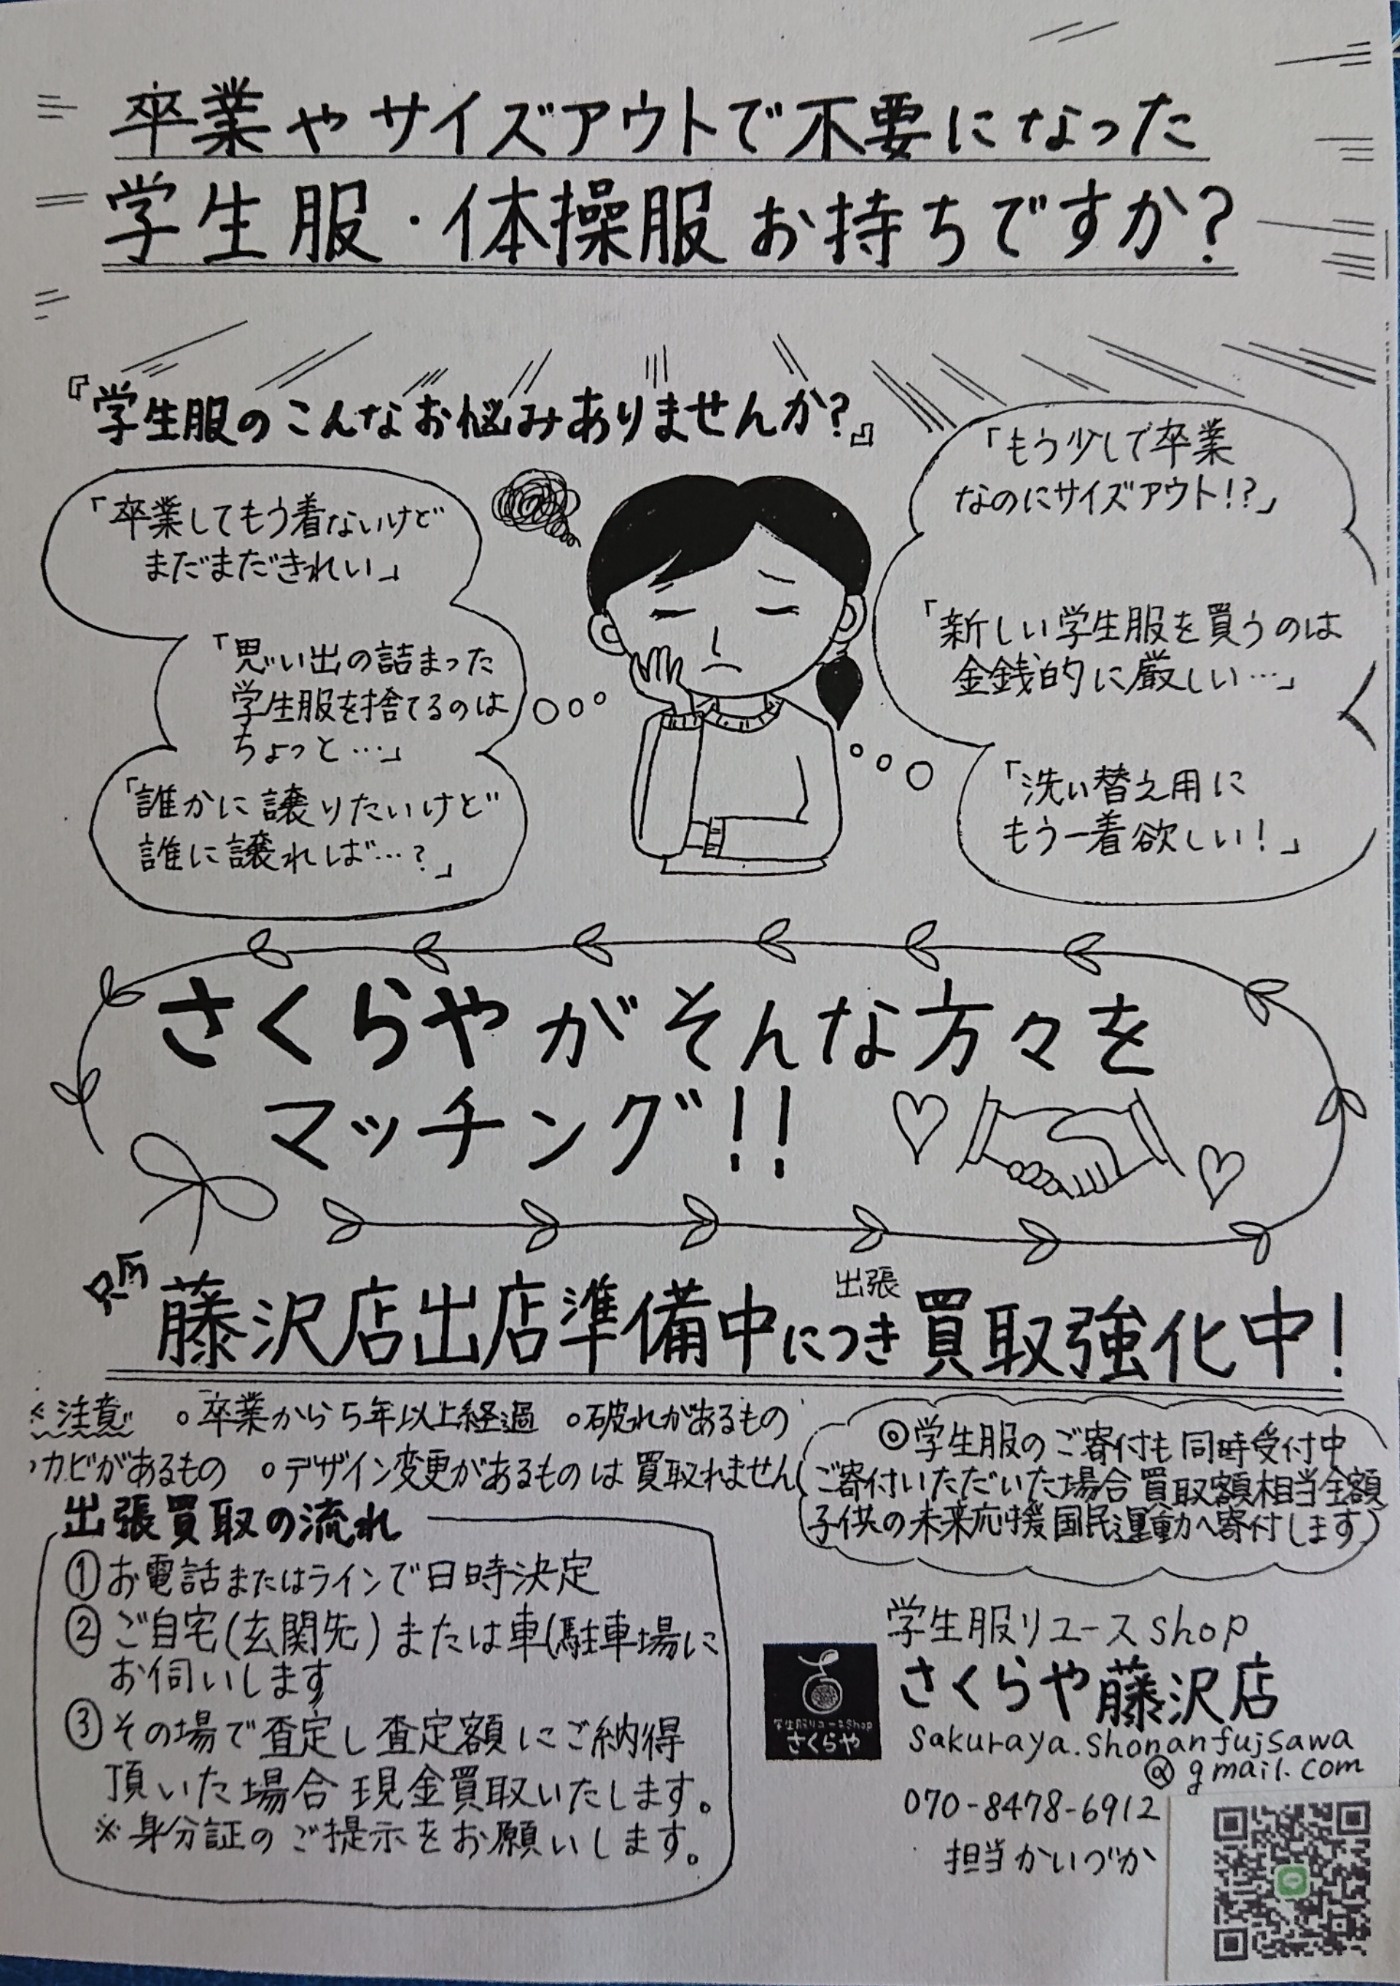 卒業やサイズアウトで不要になった
学生服・体操服お持ちですか?
『学生服のこんなお悩みありませんか?』
「卒業してもう着ないけど
まだまだきれい」
「思い出の詰まった
学生服を捨てるのは
ちょっと…」
「誰かに譲りたいけど
誰に譲れば…?」
「もう少しで卒業
なのにサイズアウト!?」
「新しい学生服を買うのは
金銭的に厳しい…」
「洗い替え用に
もう一着欲しい!」
さくらやがそんな方々を
マッチング!!
藤沢店出店準備中につき出張買取強化中!
注意 ○卒業から5年以上経過 ○破れがあるもの
カビがあるもの ○デザイン変更があるものは買取れません
◎学生服のご寄付も同時受付中
(ご寄付いただいた場合買取額相当金額
子供の未来応援国民運動へ寄付します)
出張買取の流れ
①お電話またはラインで日時決定
②ご自宅(玄関先)または車(駐車場に
お伺いします
③その場で査定し査定額にご納得
頂いた場合現金買取いたします。
※身分証のご提示をお願いします。
学生服リユースshop
さくらや
学生服リユースshop
さくらや藤沢店
sakuraya.shonanfujisawa
@gmail.com
070-8478-6912
担当かいづか